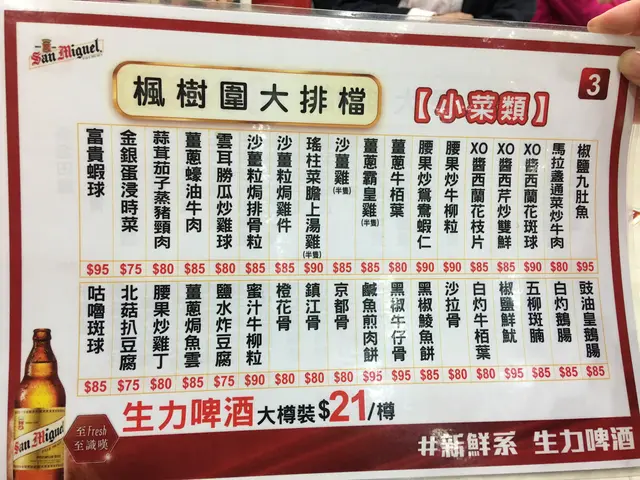 San Miguel
楓樹圍大排檔
【小菜類】
3
椒鹽九肚魚 $95
馬拉盞通菜炒牛肉 $80
XO醬西蘭花斑球 $90
XO醬西芹炒雙鮮 $85
XO醬西蘭花枝片 $85
腰果炒牛柳粒 $90
腰果炒鴛鴦蝦仁 $85
薑蔥牛栢葉 $80
薑蔥霸皇雞(半隻) $85
沙薑雞(半隻) $85
瑤柱菜膽上湯雞(半隻) $90
沙薑粒焗雞件 $85
沙薑粒焗排骨粒 $85
雲耳勝瓜炒雞球 $80
薑蔥蠔油牛肉 $85
蒜茸茄子蒸豬頸肉 $80
金銀蛋浸時菜 $75
富貴蝦球 $95
豉油皇鵝腸 $85
白灼鵝腸 $85
五柳斑腩 $85
椒鹽鮮魷 $95
白灼牛栢葉 $80
沙拉骨 $80
黑椒鯪魚餅 $85
黑椒牛仔骨 $95
鹹魚煎肉餅 $95
京都骨 $80
鎮江骨 $80
橙花骨 $80
蜜汁牛柳粒 $90
鹽水炸豆腐 $75
薑蔥焗魚雲 $85
腰果炒雞丁 $80
北菇扒豆腐 $75
咕嚕斑球 $85
San Miguel
至Fresh
至識嘆
生力啤酒 大樽裝 $21/樽
#新鮮系 生力啤酒